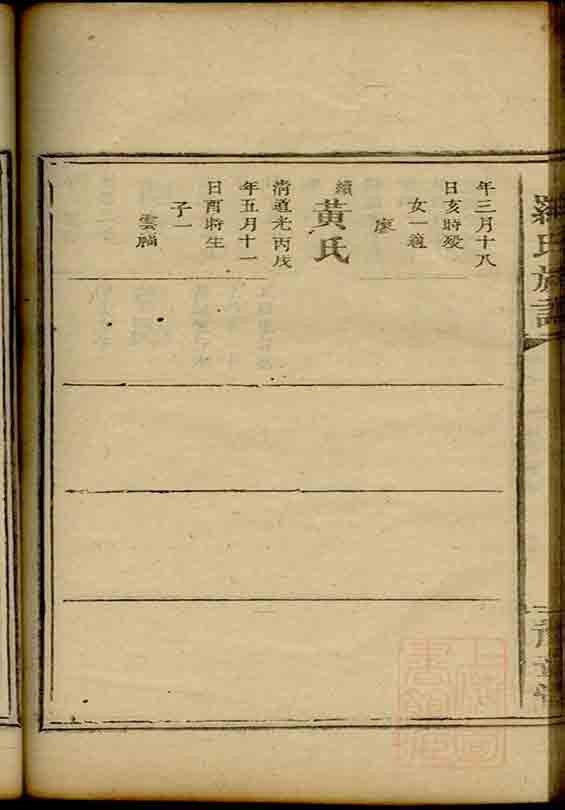 羅氏族譜
年三月十八
日亥時歿
女一適
廖
續
黄氏
清道光丙戌
年五月十一
日酉時生
子一
雲福